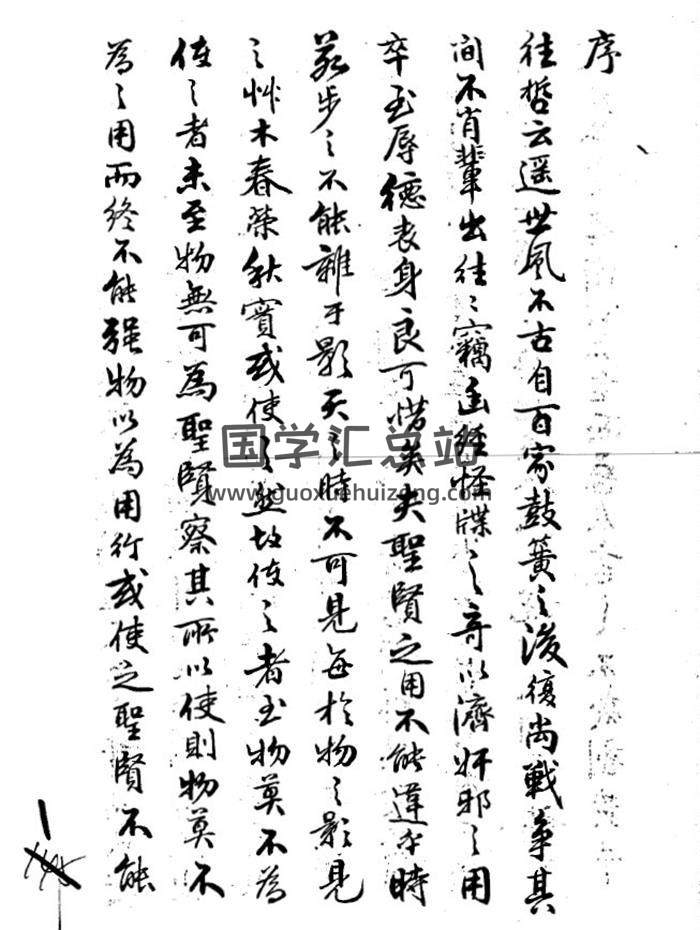 序
往哲云遥世风不古自百家鼓簧之後復尚戰争其
间不肖輩出往〻竊出經怪牒之奇以濟奸邪之用
卒至辱德丧身良可惜矣夫聖賢之用不能違乎時
若步之不能離于影天之時不可見每於物之影見
之艸木春榮秋實或使之然故使之者至物莫不為
使之者未至物無可為聖賢察其所以使則物莫不
為之用而終不能强物以為用行或使之聖賢不能
国学汇总站
www.guoxuehuizong.com
1